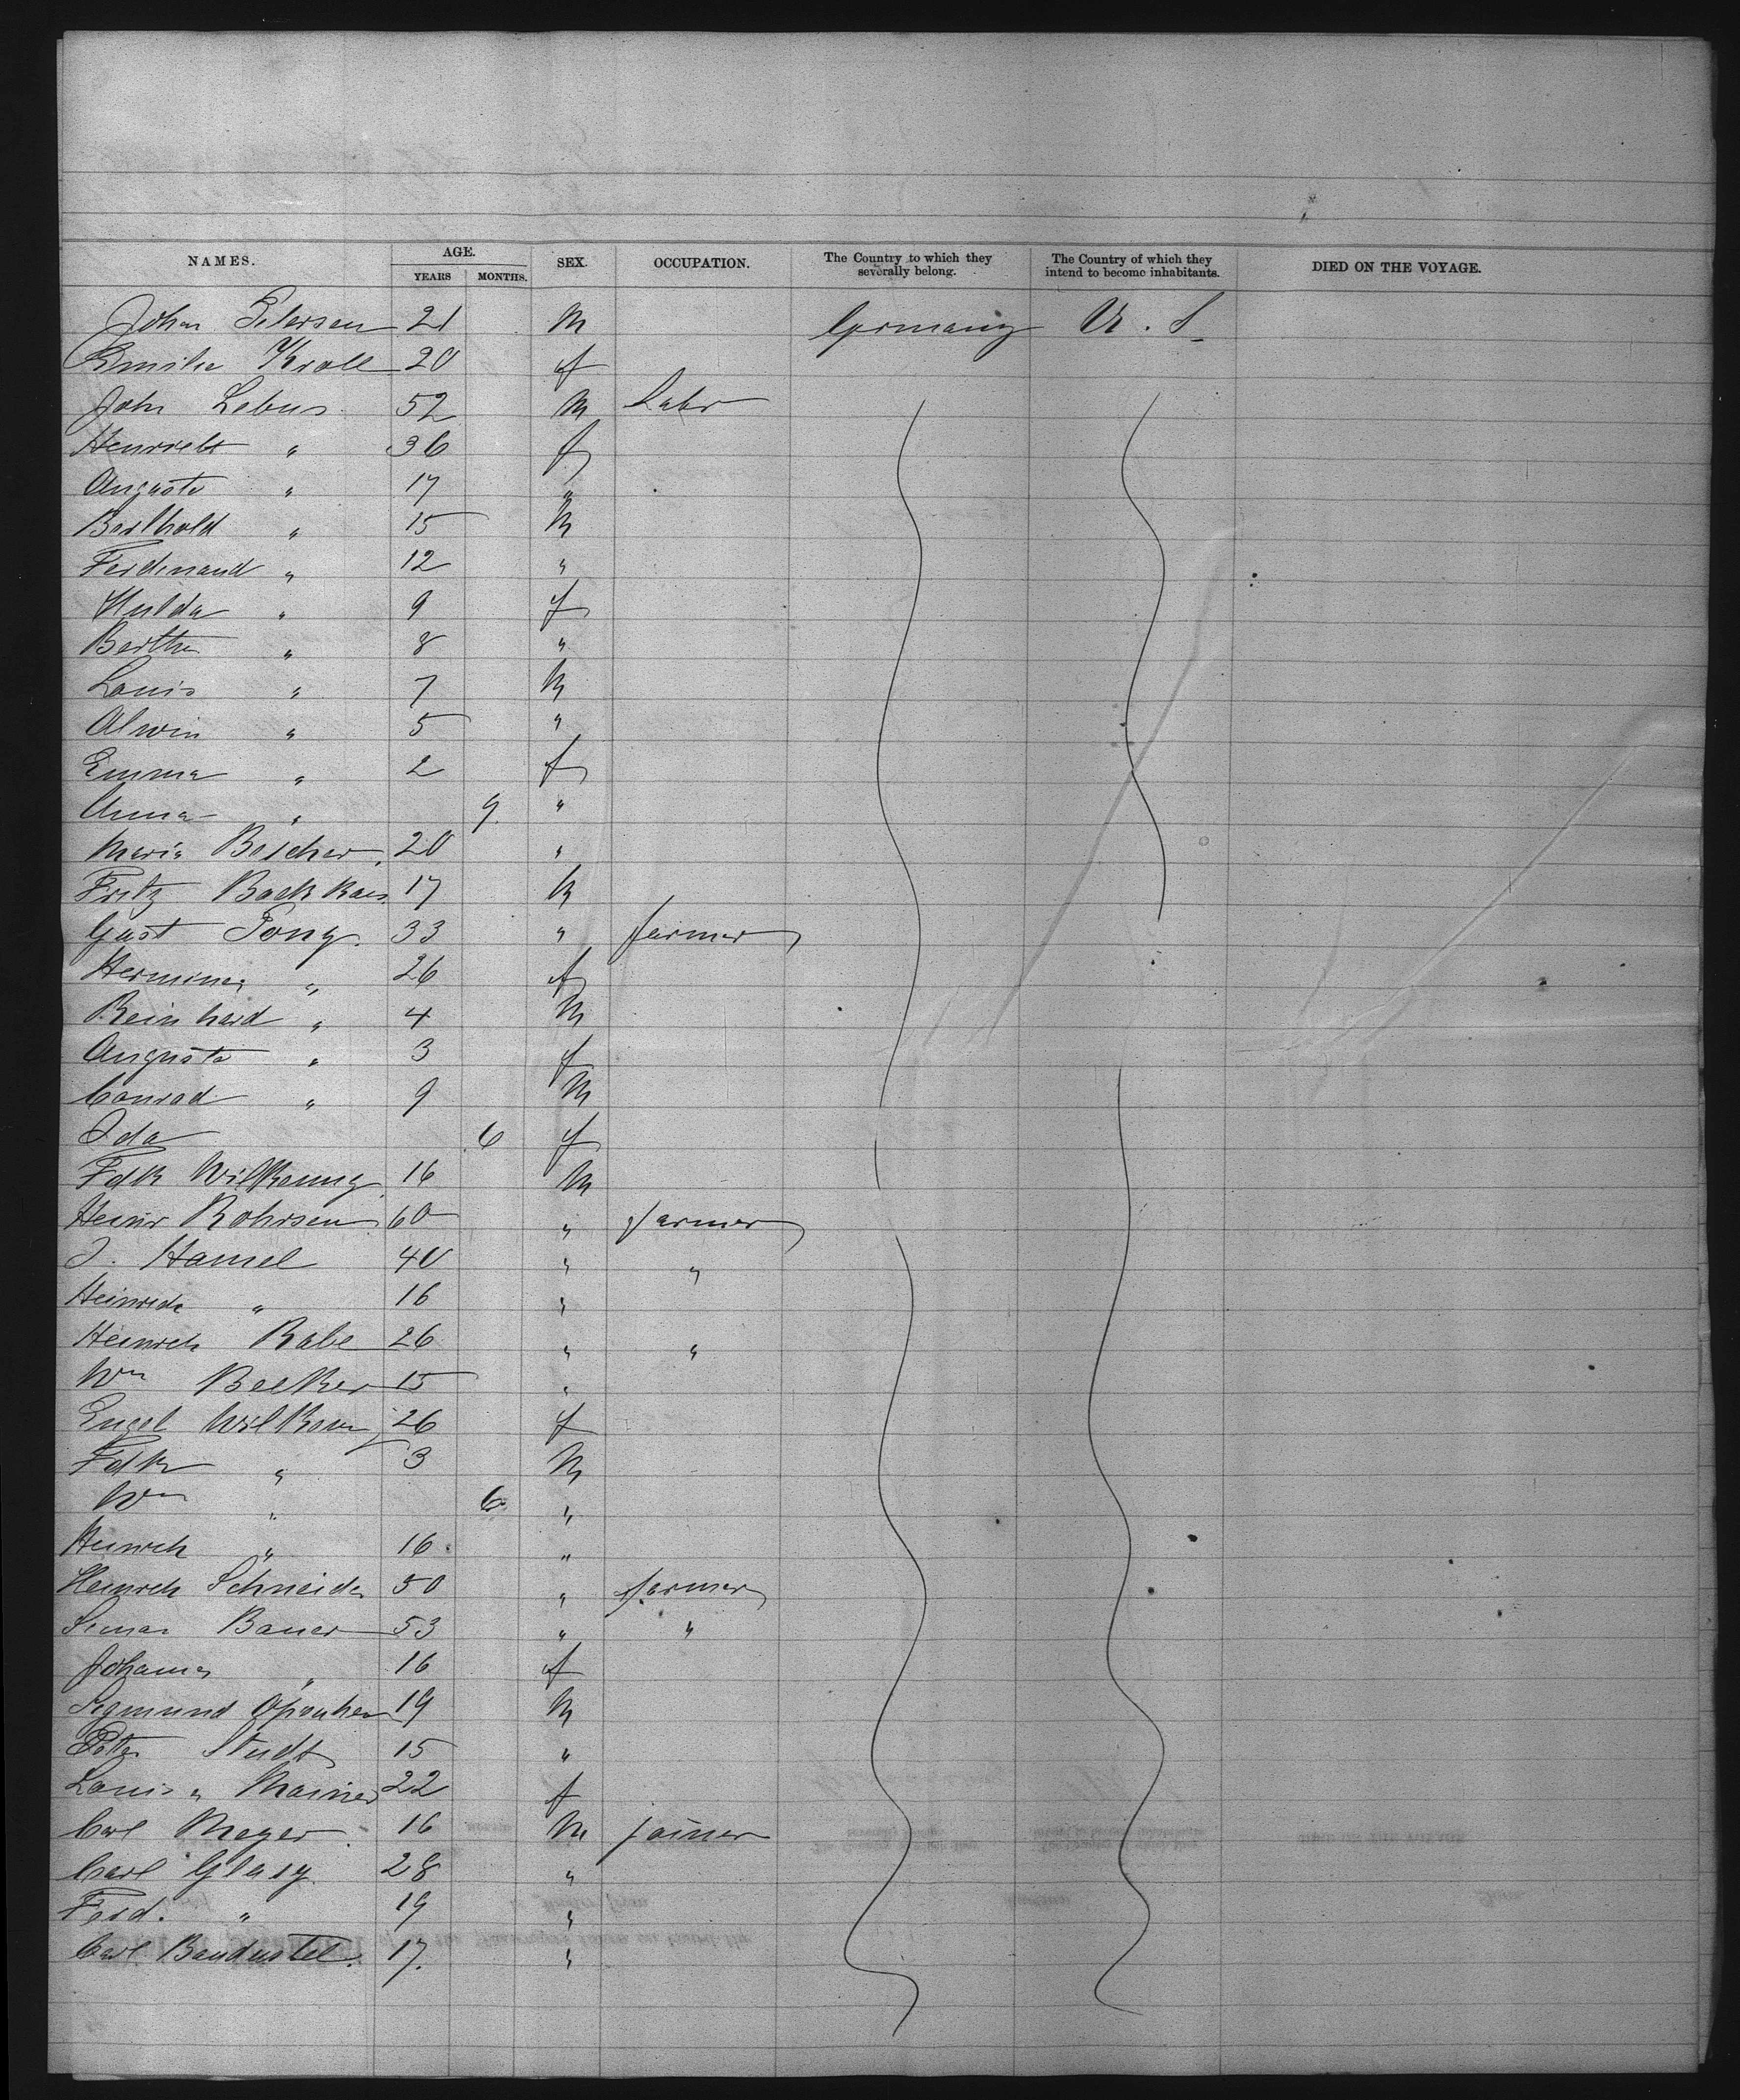 NAMES. AGE. SEX. OCCUPATION. The Country to which they severally belong. The Country of which they intend to become inhabitants. DIED ON THE VOYAGE.
YEARS MONTHS.
John Petersen 21 M Germany U. S
Emilie Kroll 20 f
John Lebus 52 M Labr
Henriett " 36 f
Auguste " 17 "
Berthold " 15 M
Ferdinand " 12 "
Hulda " 9 f
Bertha " 8 "
Louis " 7 M
Alwin " 5 "
Emma " 2 f
Anna " 9 "
Maria 20 "
Fritz 17 M
Gust 33 " farmer
Hermine " 26 f
Reinhard " 4 M
Auguste " 3 f
Conrad " 9 M
Ida 6 f
Fdk Wilkening 16 M
Heinr Rohrsen 60 " farmer
J. Hamel 40 " "
Heinrich " 16 "
Heinrich Rabe 26 " "
Wm Becker 15 "
Engel 26 f
Fdk " 3 M
Wm " 6 "
Heinrich " 16 "
Heinrich Schneider 50 " farmer
Bauer 53 " "
" 16 f
Sigmund 19 M
Peter Studt 15 "
22 f
Carl Meyer 16 M joiner
Carl 28 "
Ferd. " 19 "
Carl 17. "